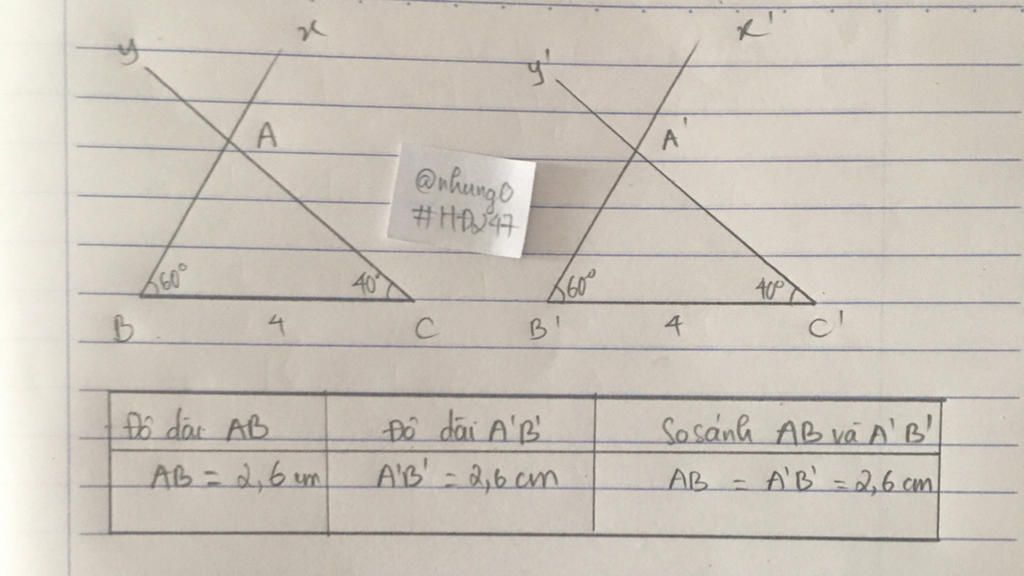 y x
A
60° 40°
B 4 C
@nhung0
#HDJ247
y' x'
A'
60° 40°
B' 4 C'
Độ dài AB Độ dài A'B' So sánh AB và A'B'
AB = 2,6 cm A'B' = 2,6 cm AB = A'B' = 2,6 cm